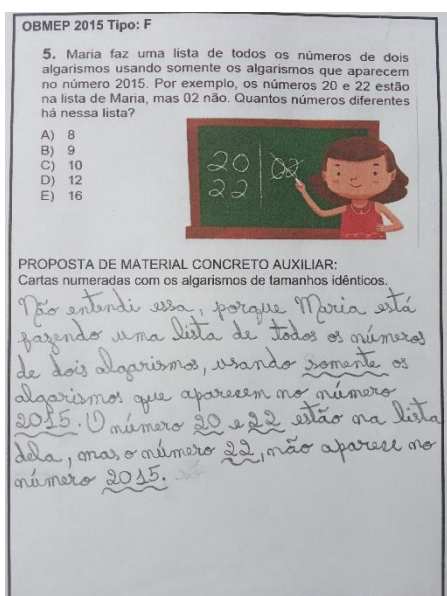 OBMEP 2015 Tipo: F
5. Maria faz uma lista de todos os números de dois
algarismos usando somente os algarismos que aparecem
no número 2015. Por exemplo, os números 20 e 22 estão
na lista de Maria, mas 02 não. Quantos números diferentes
há nessa lista?
A) 8
B) 9
C) 10
D) 12
E) 16
20 02
22
PROPOSTA DE MATERIAL CONCRETO AUXILIAR:
Cartas numeradas com os algarismos de tamanhos idênticos.
Não entendi essa, porque Maria está
fazendo uma lista de todos os números
de dois algarismos, usando somente os
algarismos que aparecem no número
2015. O número 20 e 22 estão na lista
dela, mas o número 22, não aparece no
número 2015.